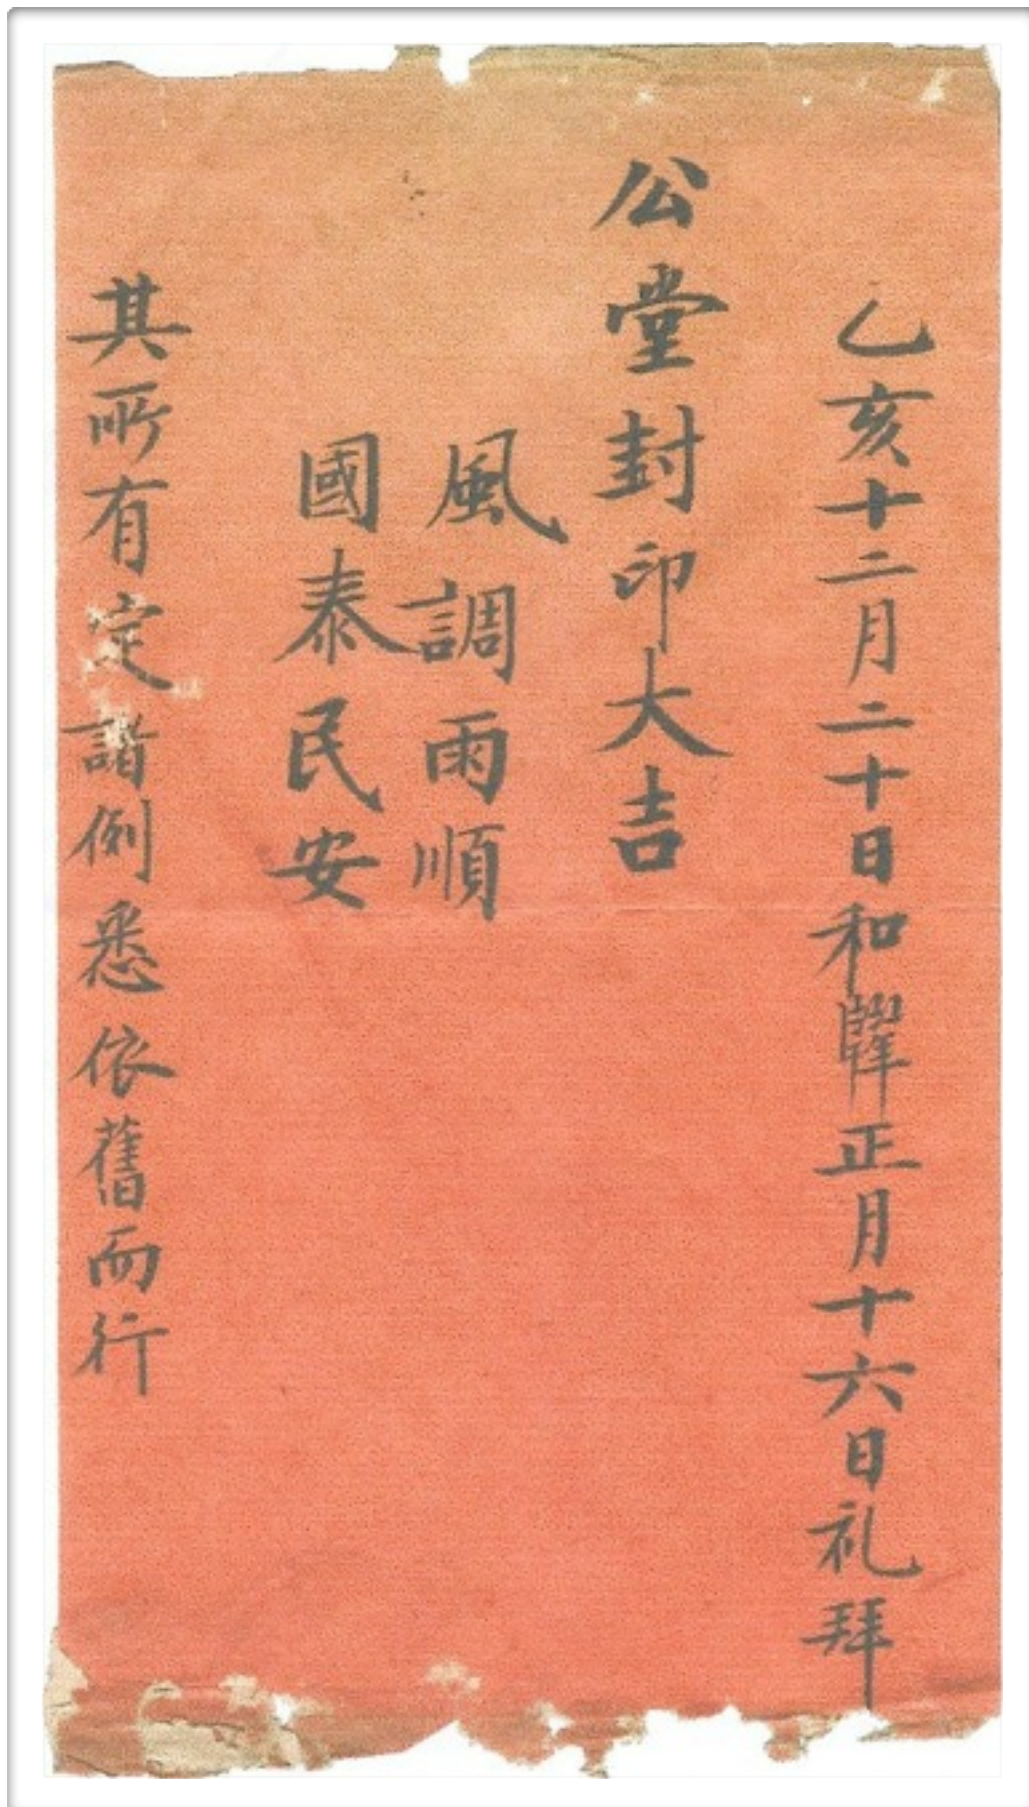 乙亥十二月二十日和正月十六日礼拜
公堂封印大吉
風調雨順
國泰民安
其所有定諸例悉依舊而行